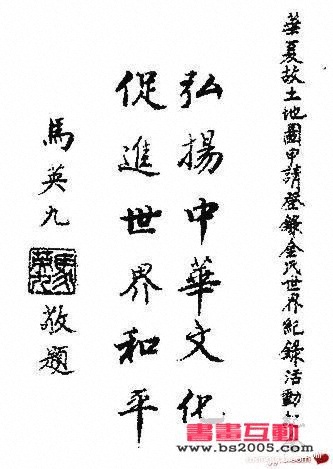 華夏故土地圖申請登錄金氏世界紀錄活動
弘揚中華文化
促進世界和平
馬英九
敬題
書畫互動
www.bs2005.com